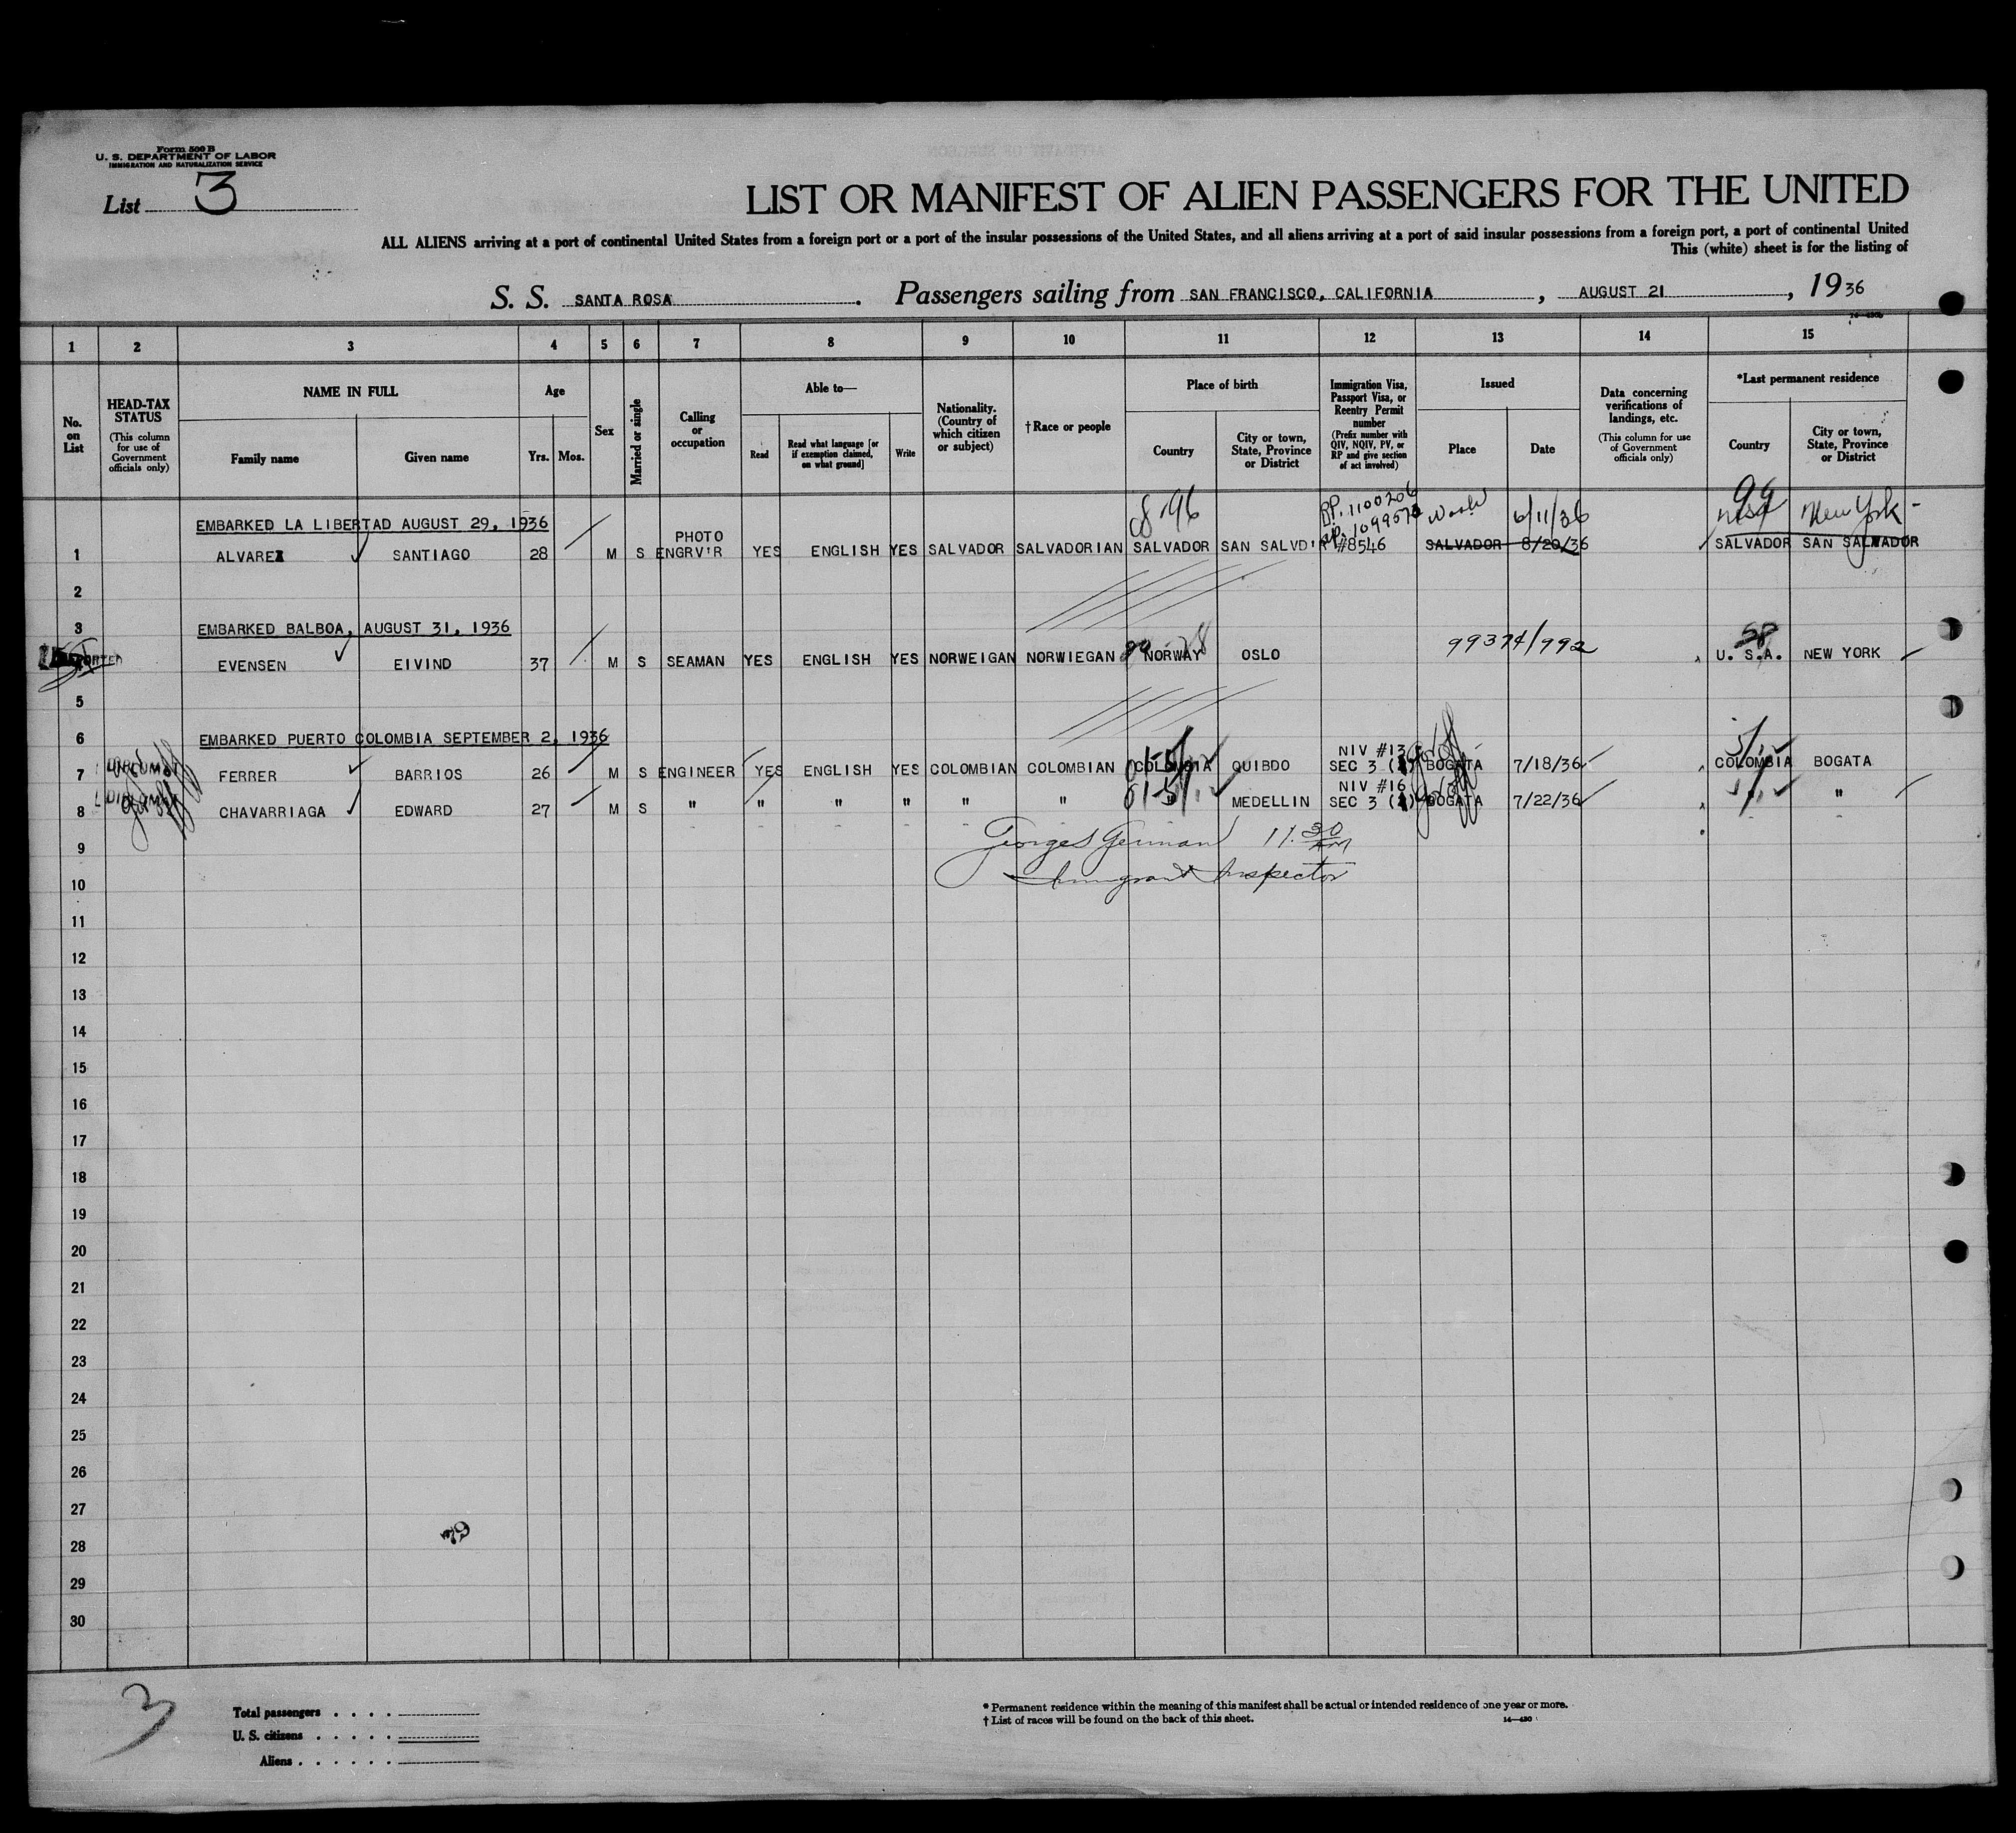 Form 500 B
U. S. DEPARTMENT OF LABOR
IMMIGRATION AND NATURALIZATION SERVICE
List 3
LIST OR MANIFEST OF ALIEN PASSENGERS FOR THE UNITED
ALL ALIENS arriving at a port of continental United States from a foreign port or a port of the insular possessions of the United States, and all aliens arriving at a port of said insular possessions from a foreign port, a port of continental United
This (white) sheet is for the listing of
S. S. SANTA ROSA. Passengers sailing from SAN FRANCISCO, CALIFORNIA, AUGUST 21, 1936
1 2 3 4 5 6 7 8 9 10 11 12 13 14 15
No. on List
HEAD-TAX STATUS
(This column for use of Government officials only)
NAME IN FULL
Family name Given name
Age
Yrs. Mos.
Sex
Married or single
Calling or occupation
Able to—
Read
Read what language [or if exemption claimed, on what ground]
Write
Nationality. (Country of which citizen or subject)
†Race or people
Place of birth
Country
City or town, State, Province or District
Immigration Visa, Passport Visa, or Reentry Permit number
(Prefix number with QIV, NQIV, PV, or RP and give section of act involved)
Issued
Place Date
Data concerning verifications of landings, etc.
(This column for use of Government officials only)
*Last permanent residence
Country
City or town, State, Province or District
8-96 RP. 1100206 6/11/36 99 New York
EMBARKED LA LIBERTAD AUGUST 29, 1936
PHOTO
1 ALVAREZ SANTIAGO 28 M S ENGRV'R YES ENGLISH YES SALVADOR SALVADORIAN SALVADOR SAN SALVD'R #8546 SALVADOR 8/20/36 SALVADOR SAN SALVADOR
2
3 EMBARKED BALBOA, AUGUST 31, 1936
99374/992
EVENSEN EIVIND 37 M S SEAMAN YES ENGLISH YES NORWEIGAN NORWIEGAN NORWAY OSLO U. S. A. NEW YORK
5
6 EMBARKED PUERTO COLOMBIA SEPTEMBER 2, 1936
NIV #13
7 DIPLOMAT FERRER BARRIOS 26 M S ENGINEER YES ENGLISH YES COLOMBIAN COLOMBIAN COLOMBIA QUIBDO SEC 3 BOGATA 7/18/36 COLOMBIA BOGATA
NIV #16
8 DIPLOMAT CHAVARRIAGA EDWARD 27 M S " " " " " " MEDELLIN SEC 3 BOGATA 7/22/36 "
9 Georges German 11:30 AM
10 Immigrant Inspector
11
12
13
14
15
16
17
18
19
20
21
22
23
24
25
26
27
28
29
30
3
Total passengers . . . .
U. S. citizens . . . . .
Aliens . . . . . .
* Permanent residence within the meaning of this manifest shall be actual or intended residence of one year or more.
† List of races will be found on the back of this sheet.